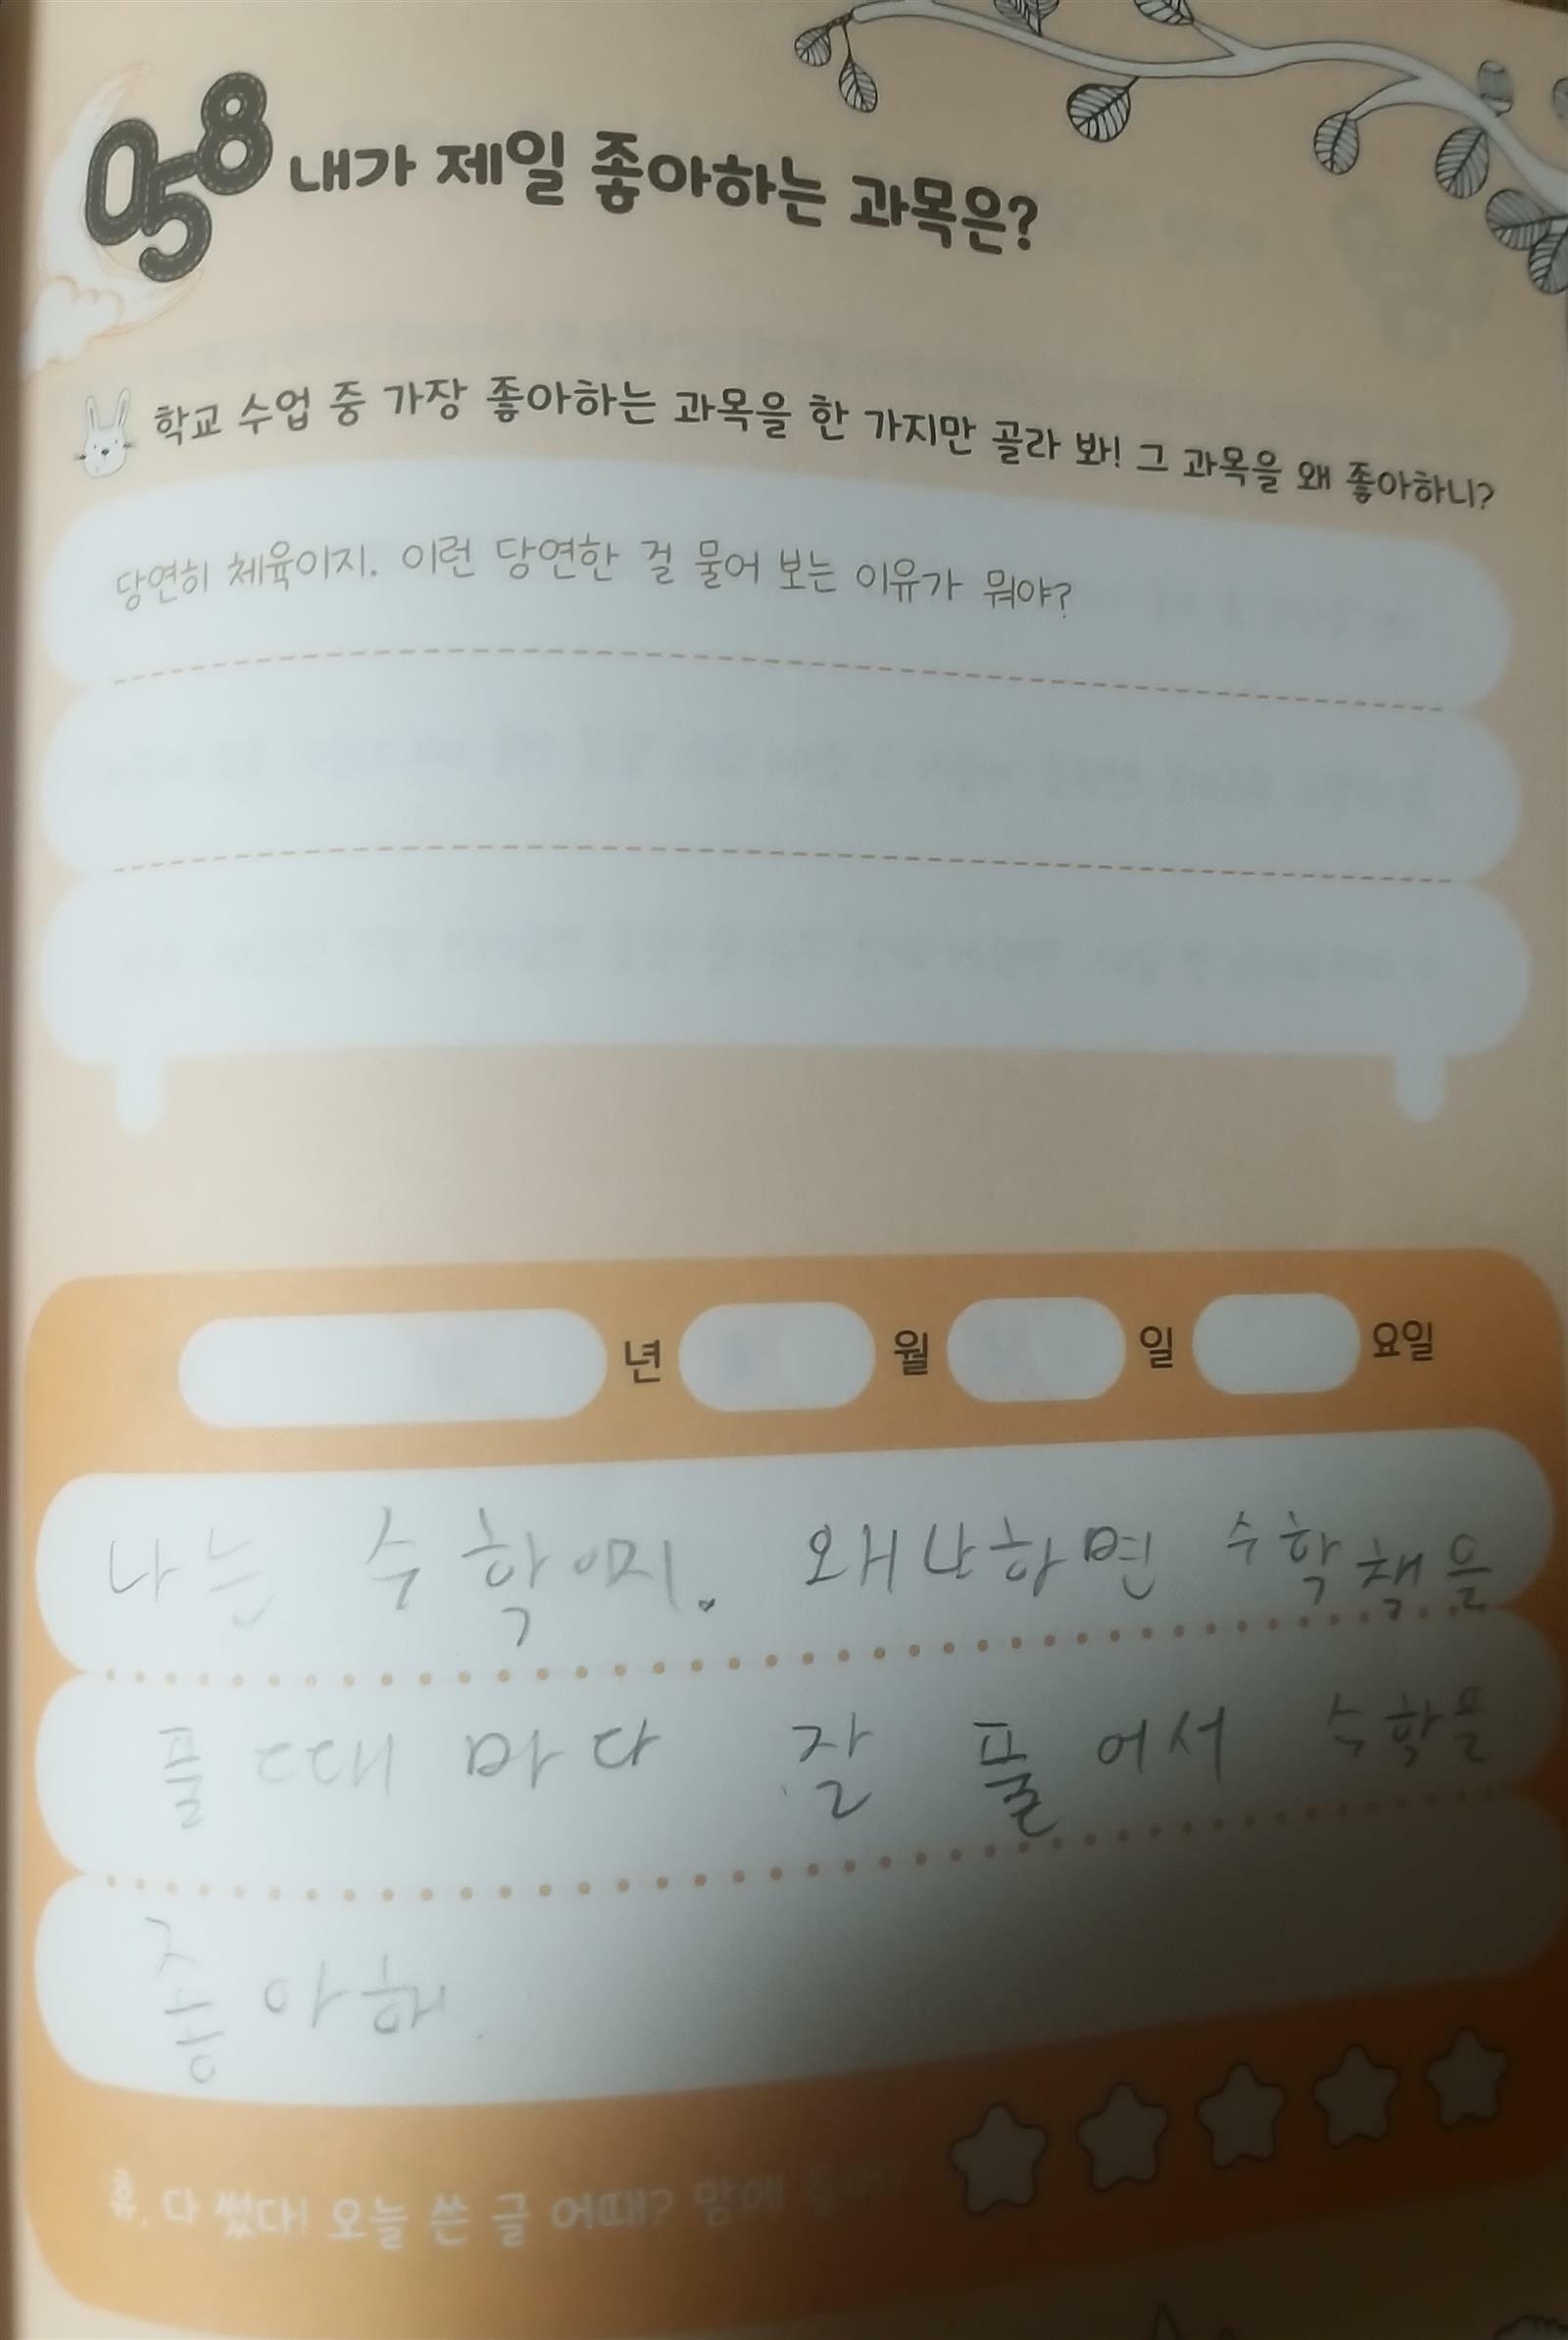 058 내가 제일 좋아하는 과목은?
학교 수업 중 가장 좋아하는 과목을 한 가지만 골라 봐! 그 과목을 왜 좋아하니?
당연히 체육이지. 이런 당연한 걸 물어 보는 이유가 뭐야?
년 월 일 요일
나는 수학이지. 왜나하면 수학책을
풀때마다 잘 풀어서 수학을
좋아해.
휴, 다 썼다! 오늘 쓴 글 어때? 맘에